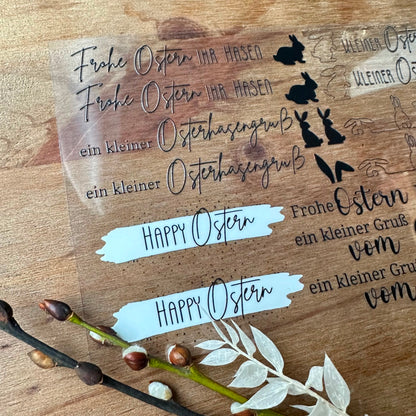 Frohe Ostern IHR HASEN
Frohe Ostern IHR HASEN
ein kleiner Osterhasengruß
ein kleiner Osterhasengruß
HAPPY Ostern
HAPPY Ostern
KLEINER OSTER
KLEINER OSTE
Frohe Ostern
ein kleiner Gruß
vom
ein kleiner Gruß
vom